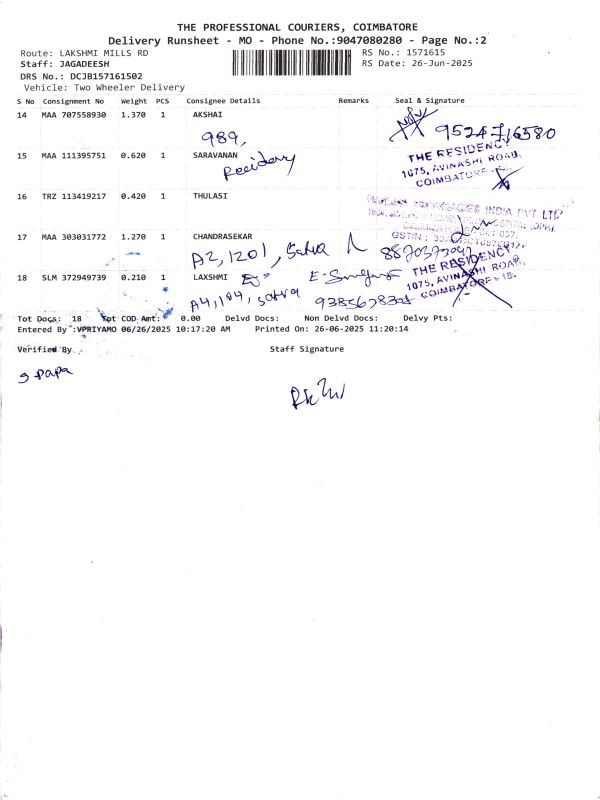 THE PROFESSIONAL COURIERS, COIMBATORE
Delivery Runsheet - MO - Phone No.:9047080280 - Page No.:2
Route: LAKSHMI MILLS RD RS No.: 1571615
Staff: JAGADEESH RS Date: 26-Jun-2025
DRS No.: DCJB157161502
Vehicle: Two Wheeler Delivery
S No Consignment No Weight PCS Consignee Details Remarks Seal & Signature
14 MAA 707558930 1.370 1 AKSHAI
989,
15 MAA 111395751 0.620 1 SARAVANAN
THE RESIDENCY
1075, AVINASHI ROAD,
COIMBATORE
16 TRZ 113419217 0.420 1 THULASI
INDIA PVT LTD
17 MAA 303031772 1.270 1 CHANDRASEKAR
A2, 1201,
18 SLM 372949739 0.210 1 LAXSHMI
THE RESIDENCY
1075, AVINASHI ROAD,
COIMBATORE - 18.
Tot Docs: 18 Tot COD Amt: 0.00 Delvd Docs: Non Delvd Docs: Delvy Pts:
Entered By :VPRIYAMO 06/26/2025 10:17:20 AM Printed On: 26-06-2025 11:20:14
Verified By Staff Signature